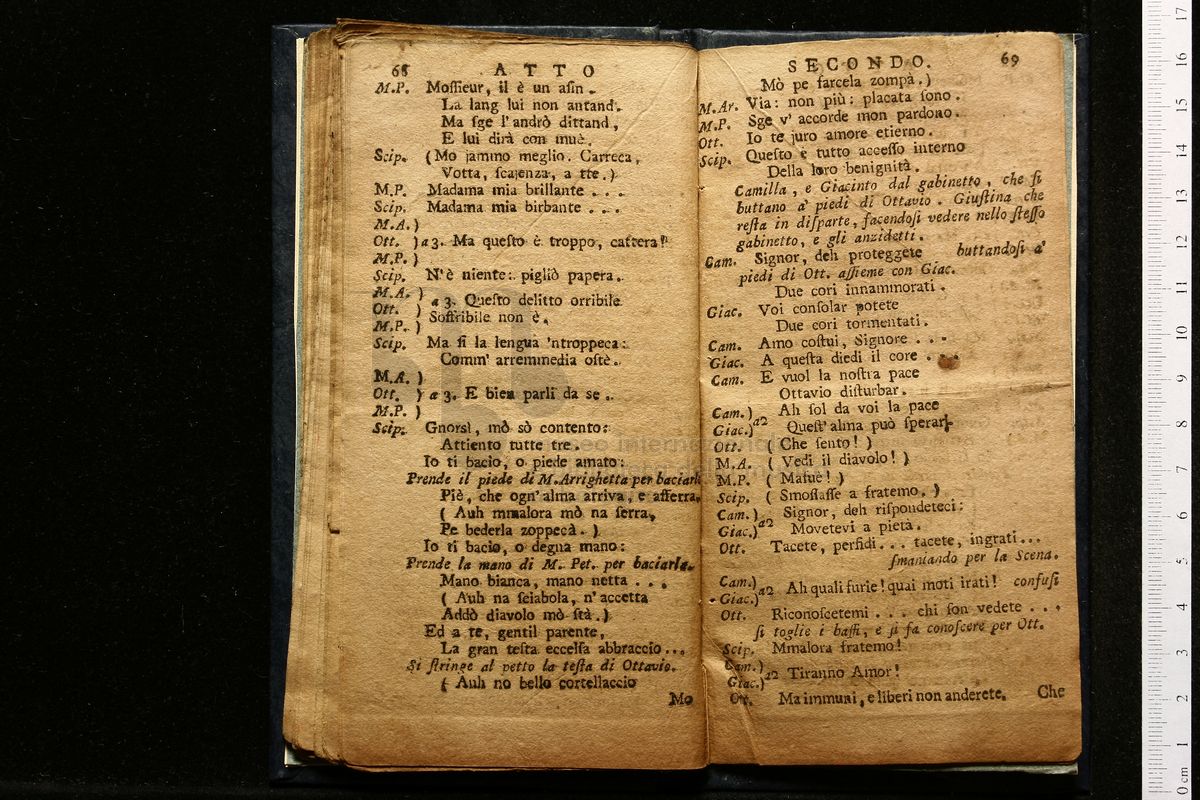 68 ATTO
M.P. Moſſieur, il è un aſin.
La lang lui non antand.
Ma ſge l'andrò dittand,
E lui dirà con muè.
Scip. (Mo jammo meglio. Carreca,
Votta, ſcajenza, a tte.)
M.P. Madama mia brillante . . .
Scip. Madama mia birbante . . .
M.A.)
Ott. ) a 3. Ma queſto è troppo, cattera!
M.P.)
Scip. N'è niente: pigliò papera.
M.A. )
Ott. ) a 3. Queſto delitto orribile
M.P. ) Soffribile non è.
Scip. Ma ſi la lengua 'ntroppeca:
Comm' arremmedia oſtè.
M.A. )
Ott. ) a 3. E bien parli da se .
M.P. )
Scip. Gnorsì, mò sò contento:
Attiento tutte tre.
Io ti bacio, o piede amato:
Prende il piede di M. Arrighetta per baciarl
Piè, che ogn'alma arriva, e afferra,
( Auh mmalora mò na ſerra,
Pe bederla zoppecà. )
Io ti bacio, o degna mano:
Prende la mano di M. Pet. per baciarla.
Mano bianca, mano netta . . .
( Auh na ſciabola, n'accetta
Addò diavolo mò ſtà.)
Ed a te, gentil parente,
La gran teſta eccelſa abbraccio...
Si ſtringe al petto la teſta di Ottavio.
( Auh no bello cortellaccio
Mo
SECONDO. 69
Mò pe farcela zompà.)
M.Ar. Via: non più: placata ſono.
M.P. Sge v' accorde mon pardono.
Ott. Io te juro amore etierno.
Scip. Queſto è tutto acceſſo interno
Della loro benignità.
Camilla, e Giacinto dal gabinetto, che ſi
buttano a' piedi di Ottavio. Giuſtina che
reſta in diſparte, facendoſi vedere nello ſteſſo
gabinetto, e gli anzidetti.
Cam. Signor, deh proteggete buttandoſi a'
piedi di Ott. aſſieme con Giac.
Due cori innammorati.
Giac. Voi conſolar potete
Due cori tormentati.
Cam. Amo coſtui, Signore . . .
Giac. A queſta diedi il core . . .
Cam. E vuol la noſtra pace
Ottavio diſturbar.
Cam.) a2 Ah ſol da voi la pace
Giac.) Queſt' alma può ſperar.
Ott. ( Che ſento! )
M.A. ( Vedi il diavolo! )
M.P. ( Mafuè! )
Scip. ( Smoſſaſſe a fratemo. )
Cam.) a2 Signor, deh riſpondeteci:
Giac.) Movetevi a pietà.
Ott. Tacete, perfidi... tacete, ingrati...
ſmaniando per la Scena.
Cam.)
Giac.) a2 Ah quali furie! quai moti irati! confuſi
Ott. Riconoſcetemi . . . chi ſon vedete . . .
ſi toglie i baffi, e ſi fa conoſcere per Ott.
Scip. Mmalora fratemo!
Cam.)
Giac.) a2 Tiranno Amor!
Ott. Ma immuni, e liberi non anderete. Che